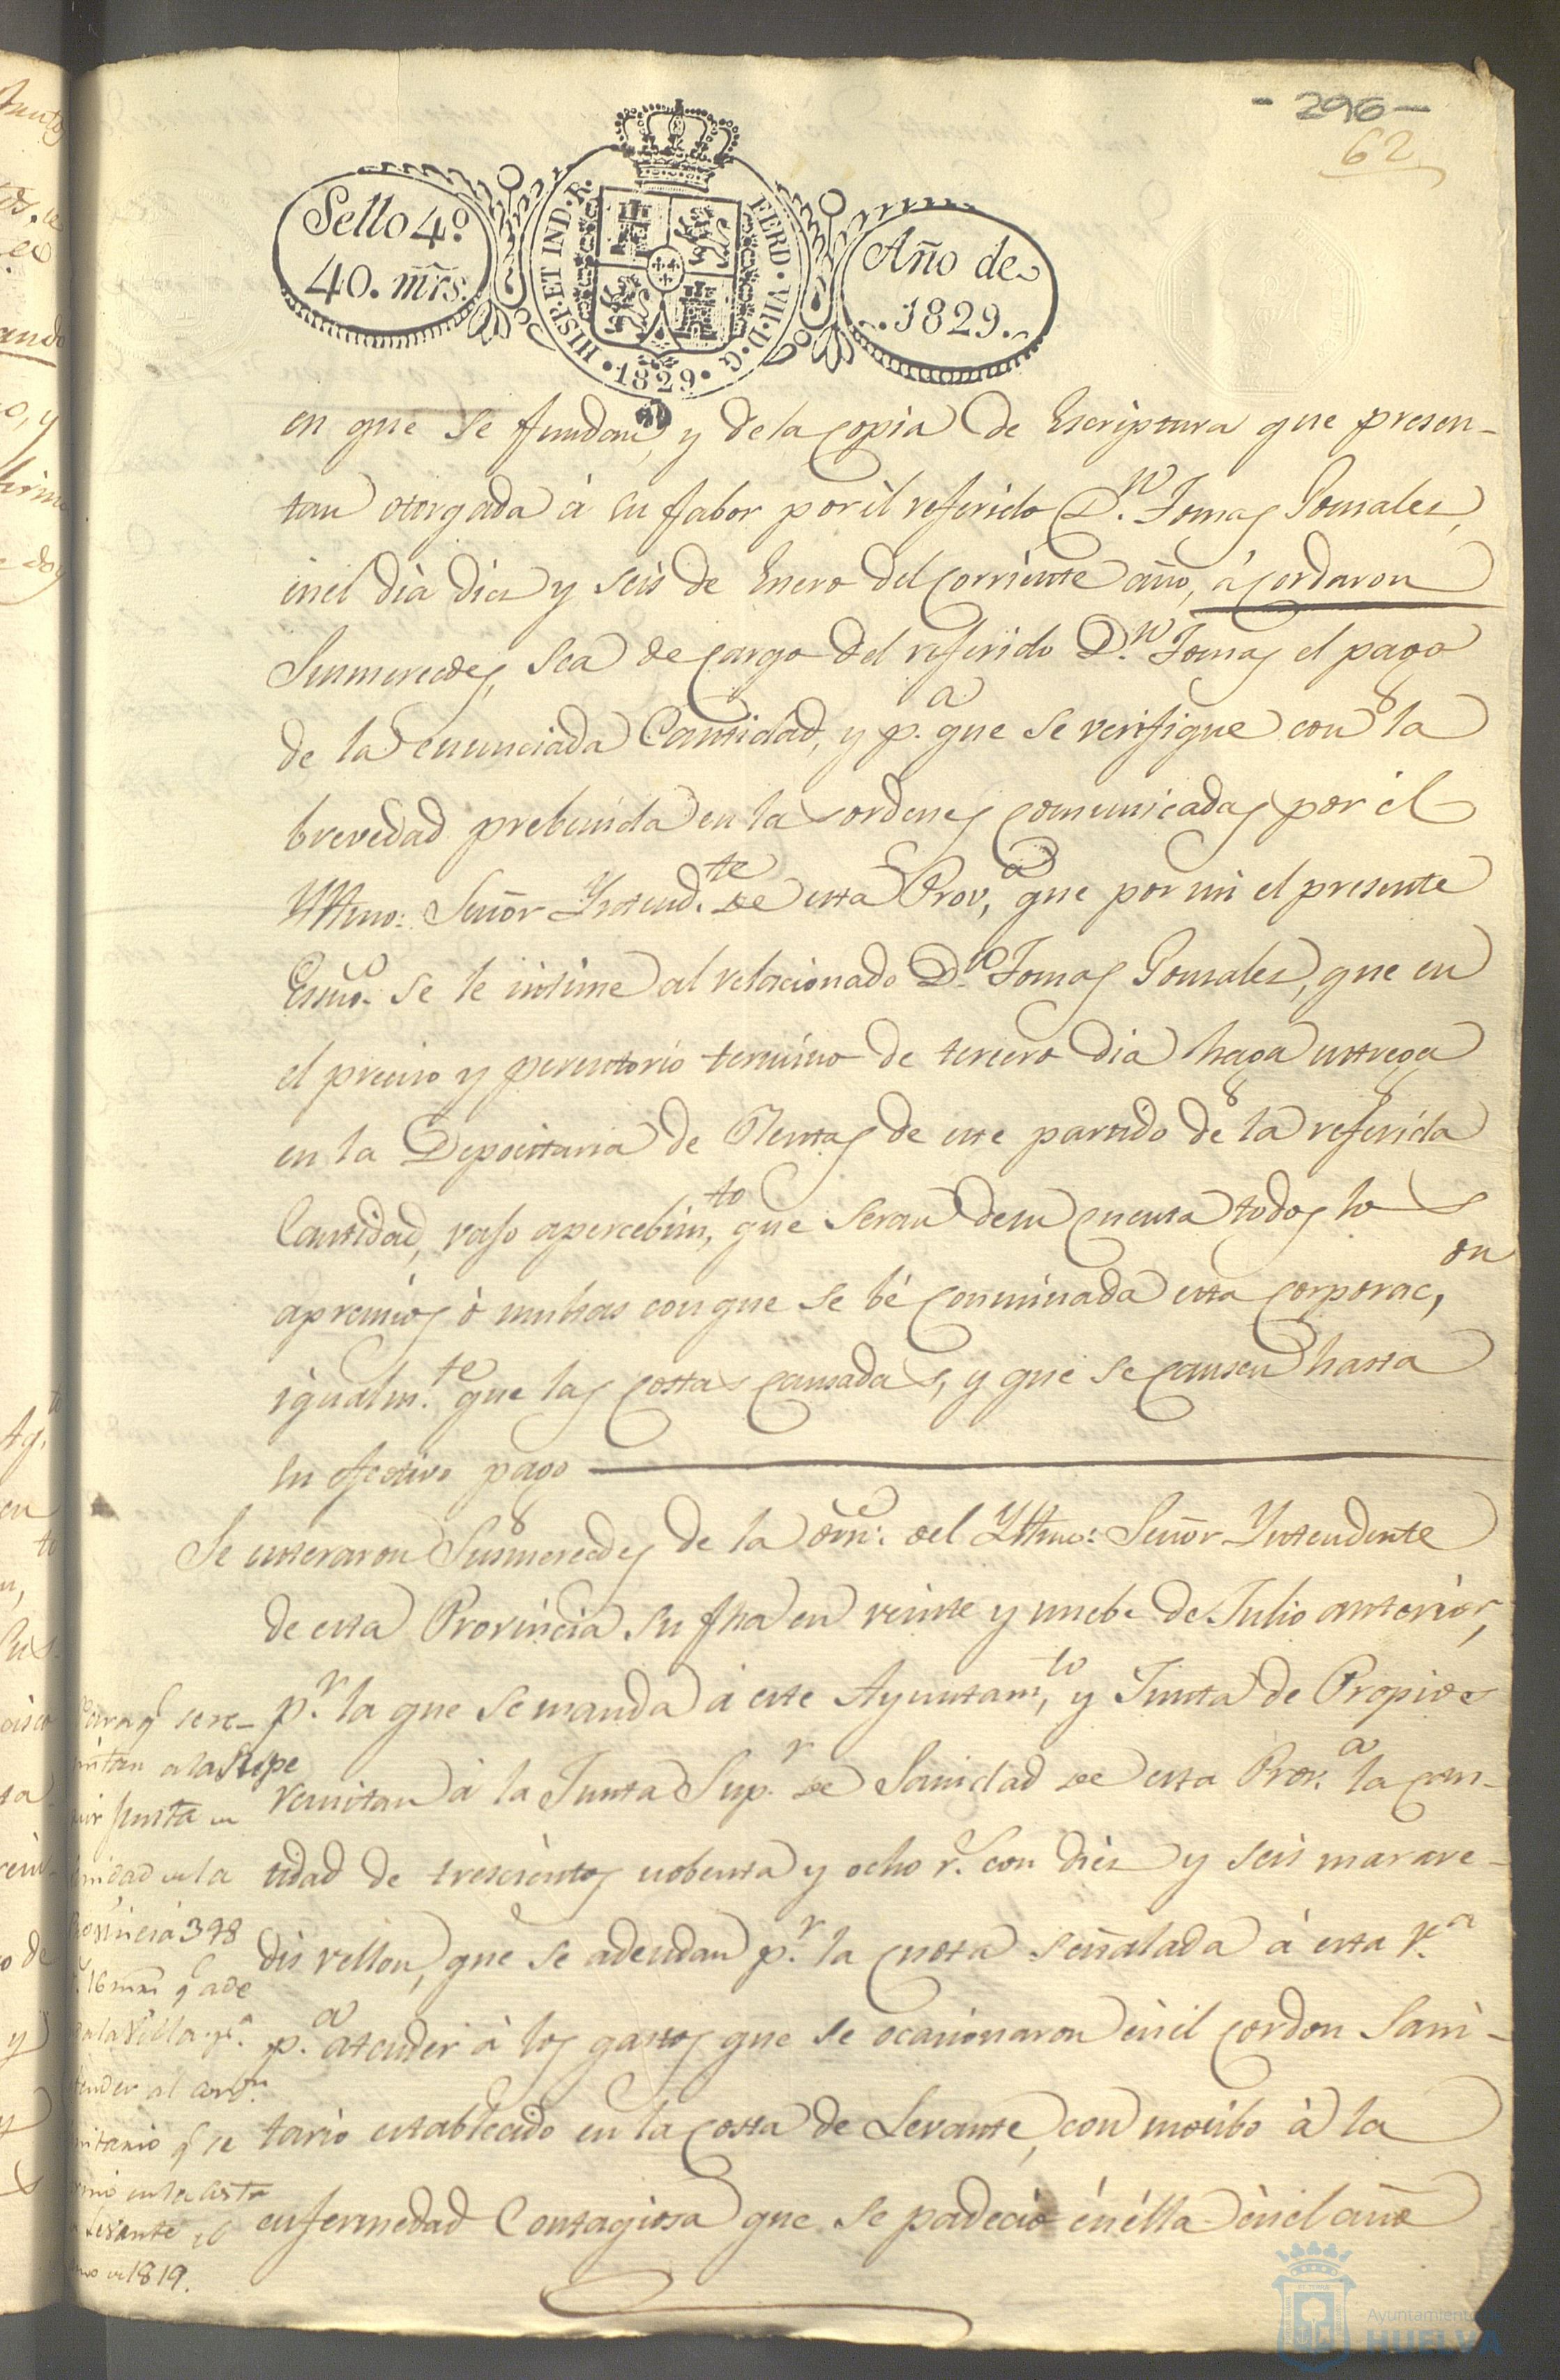 - 296 -
62
Sello 4º.
40. mrs.
HISP. ET IND. R.
FERD. VII. D. G.
1829.
Año de
1829.
en que se fundan, y de la copia de Escriptura que presen-
tan otorgada à su fabor por èl referido D.n Tomas Gonsales,
enel dia dies y seis de Enero del corriente año, àcordaron
Susmercedes, sea de cargo del referido D.n Tomas el pago
de la enunciada Cantidad, y p.a que se verifique con la
brevedad prebenida en las ordenes comunicadas por èl
Yltmo: Señor Yntend.te de esta Prov.a que por mi el presente
Essno. se le intime al relacionado D.n Tomas Gonsales, que en
el preciso y perentorio termino de tercero dia haga entrega
en la Depocitaria de Rentas de este partido de la referida
Cantidad, vajo apercebim.to que seran desu cuenta todos los
apremios ò multas con que se bé conminada esta corporac.on
igualm.te que las costas causadas, y que se causen hasta
su efectivo pago
Se enteraron Susmercedes de la orn: del Yltmo: Señor Yntendente
de esta Provincia su fha en veinte y nuebe de Julio anterior,
p.r la que se manda à este Ayuntam.to y Junta de Propios
remitan à la Junta Sup.r de Sanidad de esta Prov.a la can-
tidad de trescientos nobenta y ocho r.s con dies y seis marave-
dis vellon, que se adeudan p.r la cuota señalada à esta V.a
p.a atender à los gastos que se ocacionaron enèl cordon Sani-
tario establecido en la costa de Levante, con motibo à la
enfermedad Contagiosa que se padeciò én élla ènel año
Para q.e se re-
mitan a la Supe
rior Junta de
Sanidad de la
Provincia 398
r.s 16 mrs q.e ade
da la Villa p.a
atender al cordon
sanitario q.e se
formó en la Costa
de Levante el
año de 1819.
Ayuntamiento de
HUELVA